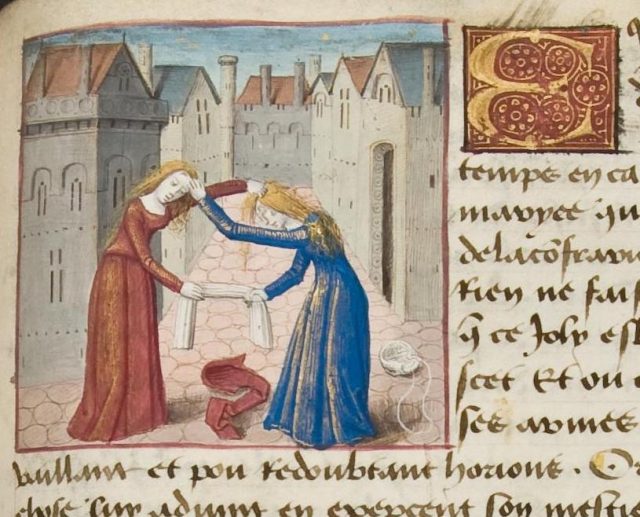 E
temps en ca
maryee qu
de la cõfrari
Rien ne fais
q̃ ce Joly est
scet Et ou
ses armes
vaillant et pou redoubtant horions .
chose luy advint en exercent son mestie